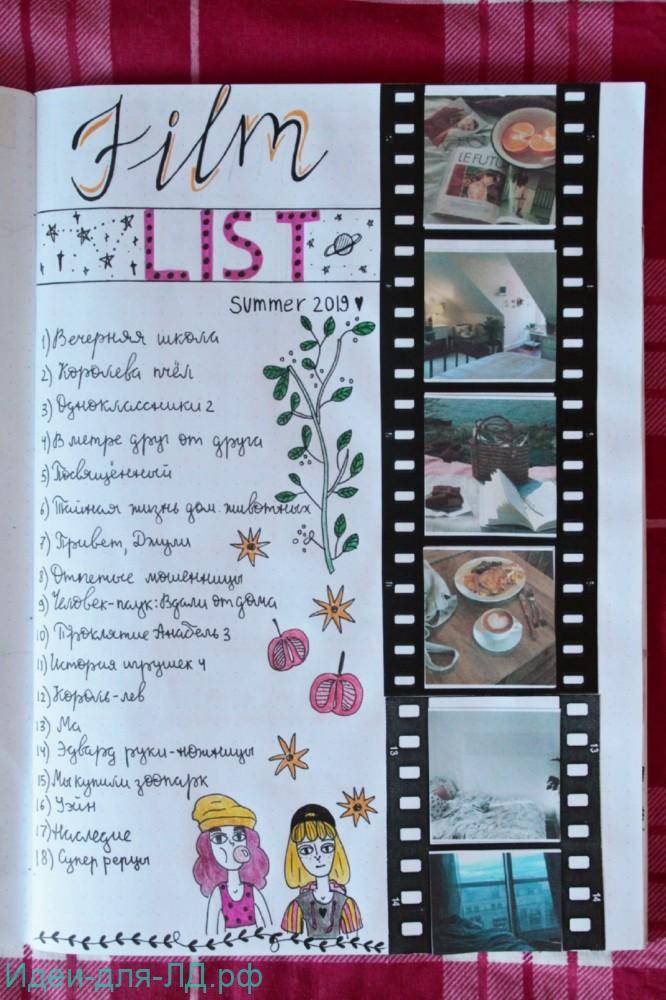 Film
LIST
Summer 2019♥
1) Вечерняя школа
2) Королева пчёл
3) Одноклассники 2
4) В метре друг от друга
5) Посвящённый
6) Тайная жизнь дом. животных
7) Привет, Джули
8) Отпетые мошенницы
9) Человек-паук: Вдали от дома
10) Проклятие Анабель 3
11) История игрушек 4
12) Король-лев
13) Ма
14) Эдвард руки-ножницы
15) Мы купили зоопарк
16) Уэйн
17) Наследие
18) Супер реперы
LE FUTU
13
13
14
14
Идеи-для-ЛД.рф